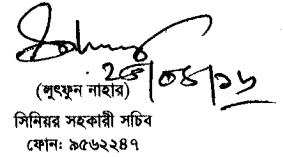 ২৪/০৪/১৬
(লুৎফুন নাহার)
সিনিয়র সহকারী সচিব
ফোন: ৯৫৬২২৪৭